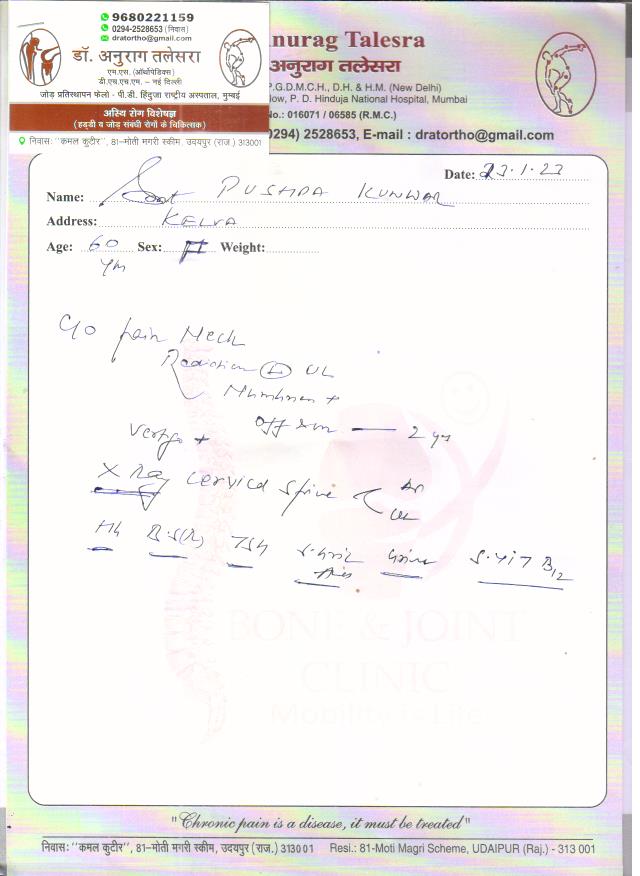 9680221159
0294-2528653 (निवास)
dratortho@gmail.com
डॉ. अनुराग तलेसरा
एम.एस. (ऑर्थोपेडिक्स)
डी.एच.एच.एम. – नई दिल्ली
जोड़ प्रतिस्थापन फेलो - पी.डी. हिंदुजा राष्ट्रीय अस्पताल, मुम्बई
अस्थि रोग विशेषज्ञ
(हड्डी व जोड़ संबंधी रोगों के चिकित्सक)
निवास: "कमल कुटीर", 81-मोती मगरी स्कीम, उदयपुर (राज.) 313001
nurag Talesra
अनुराग तलेसरा
P.G.D.M.C.H., D.H. & H.M. (New Delhi)
low, P. D. Hinduja National Hospital, Mumbai
No.: 016071 / 06585 (R.M.C.)
0294) 2528653, E-mail : dratortho@gmail.com
Date: 23.1.23
Name: PUSHPA KUNWAR
Address: KELVA
Age: 60 Sex: F Weight:
C/o pain Neck
Radiation UL
Numbness +
Vertigo + off & on — 2 yrs
X Ray Cervical Spine AP
Hb TSH S. Uric Urine S. Vit B12
Acid
BONE & JOINT
CLINIC
Mobility is Life
"Chronic pain is a disease, it must be treated"
निवास: "कमल कुटीर", 81-मोती मगरी स्कीम, उदयपुर (राज.) 313001 Resi.: 81-Moti Magri Scheme, UDAIPUR (Raj.) - 313 001